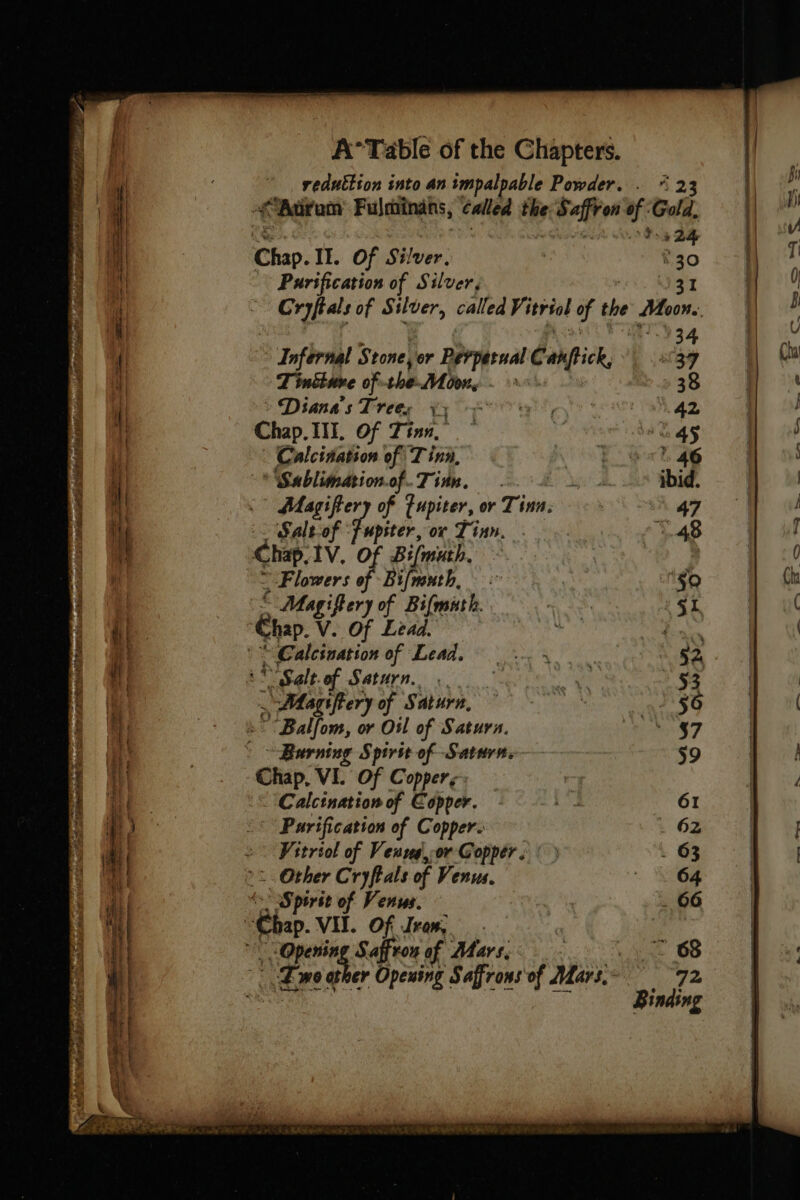 A Table of the Chapters.
reduction into an impalpable Powder. 23
Aurum Fulminans, called the Saffron of Gold,
24
Chap. II. Of Silver. 30
Purification of Silver, 31
Cryſtals of Silver, called Vitriol of the Moon.
34
Infernal Stone, or Perpetual Cauſtick, 37
Tincture of the Moon, 38
Diana's Tree, 42
Chap. III. Of Tinn, 45
Calcination of Tinn, 46
Sublimation of Tinn. ibid.
Magiſtery of Jupiter, or Tinn. 47
Salt of Jupiter, or Tinn. 48
Chap. IV. Of Biſmuth.
Flowers of Biſmuth, 50
Magiſtery of Biſmuth. 51
Chap. V. Of Lead.
Calcination of Lead. 52
Salt of Saturn. 53
Magiſtery of Saturn, 56
Balſom, or Oil of Saturn. 57
Burning Spirit of Saturn. 59
Chap. VI. Of Copper.
Calcination of Copper. 61
Purification of Copper. 62
Vitriol of Venus, or Copper. 63
Other Cryſtals of Venus. 64
Spirit of Venus. 66
Chap. VII. Of Iron,
Opening Saffron of Mars, 68
Two other Opening Saffrons of Mars. 72
Binding